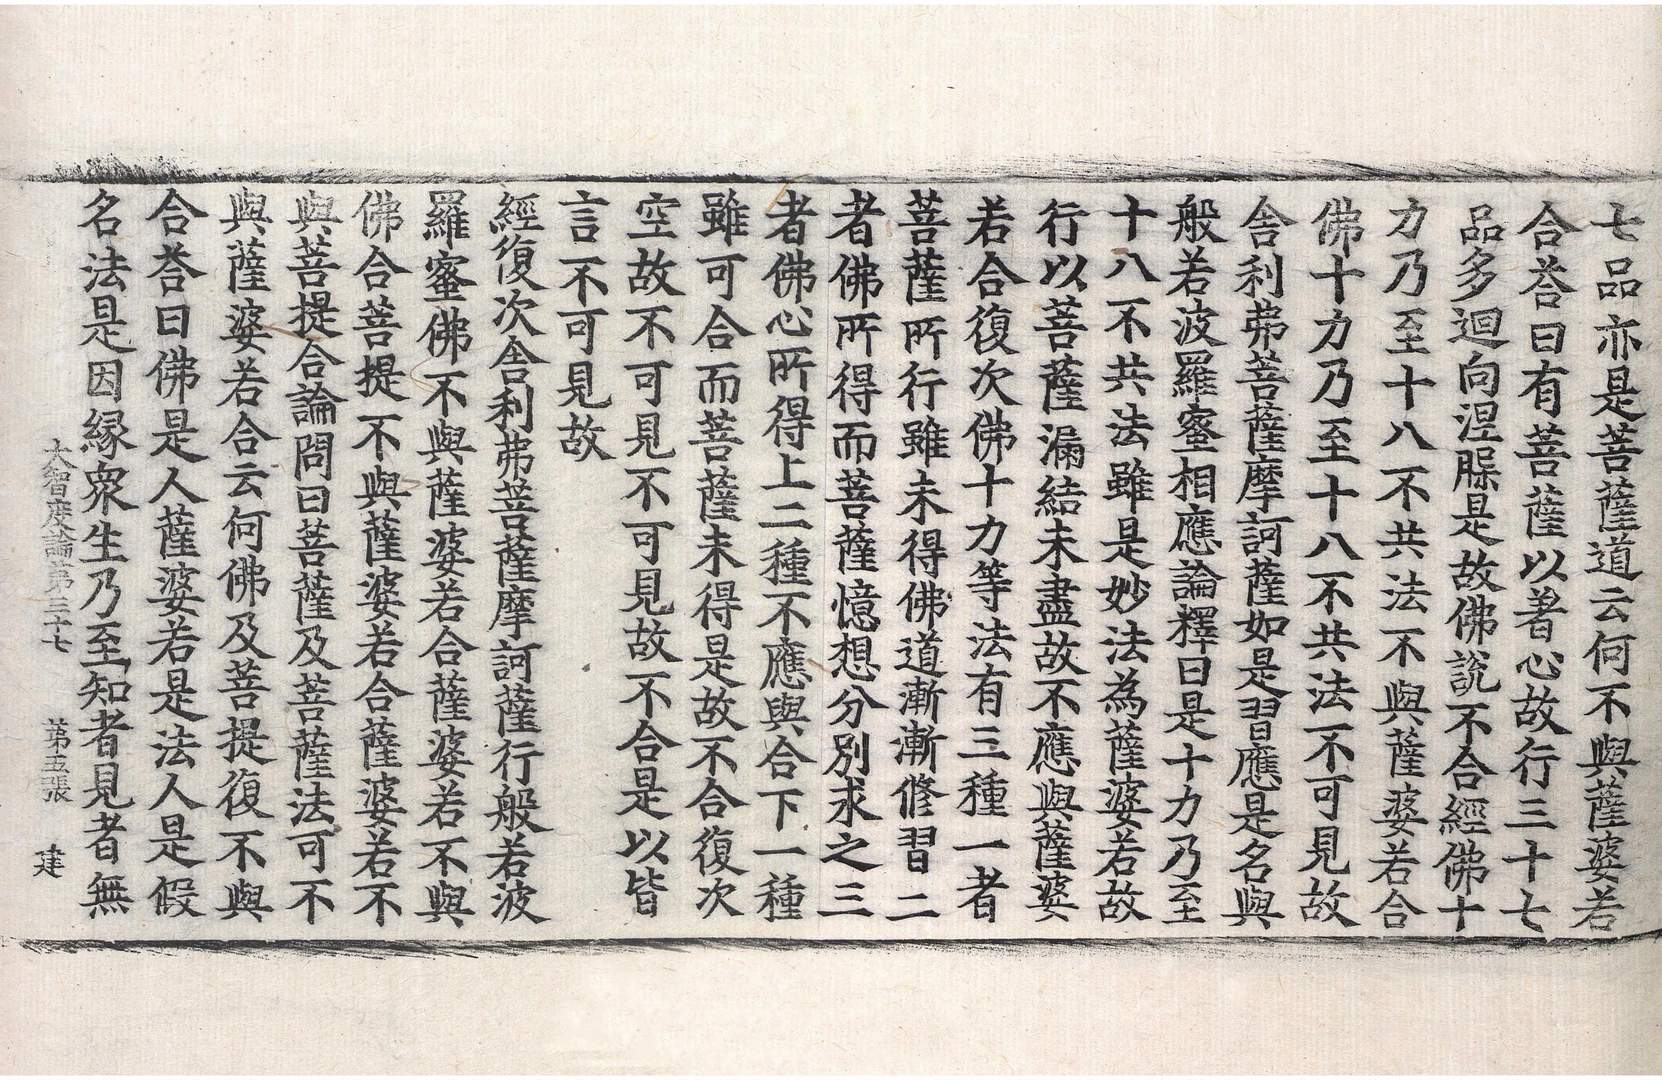 七品亦是菩薩道云何不與薩婆若
合荅曰有菩薩以著心故行三十七
品多迴向涅槃是故佛說不合經佛十
力乃至十八不共法不與薩婆若合
佛十力乃至十八不共法不可見故
舍利弗菩薩摩訶薩如是習應是名與
般若波羅蜜相應論釋曰是十力乃至
十八不共法雖是妙法為薩婆若故
行以菩薩漏結未盡故不應與薩婆
若合復次佛十力等法有三種一者
菩薩所行雖未得佛道漸漸修習二
者佛所得而菩薩憶想分別求之三
者佛心所得上二種不應與合下一種
雖可合而菩薩未得是故不合復次
空故不可見不可見故不合是以皆
言不可見故
經復次舍利弗菩薩摩訶薩行般若波
羅蜜佛不與薩婆若合薩婆若不與
佛合菩提不與薩婆若合薩婆若不
與菩提合論問曰菩薩及菩薩法可不
與薩婆若合云何佛及菩提復不與
合荅曰佛是人薩婆若是法人是假
名法是因緣衆生乃至知者見者無
大智度論第三十七 第五張 建